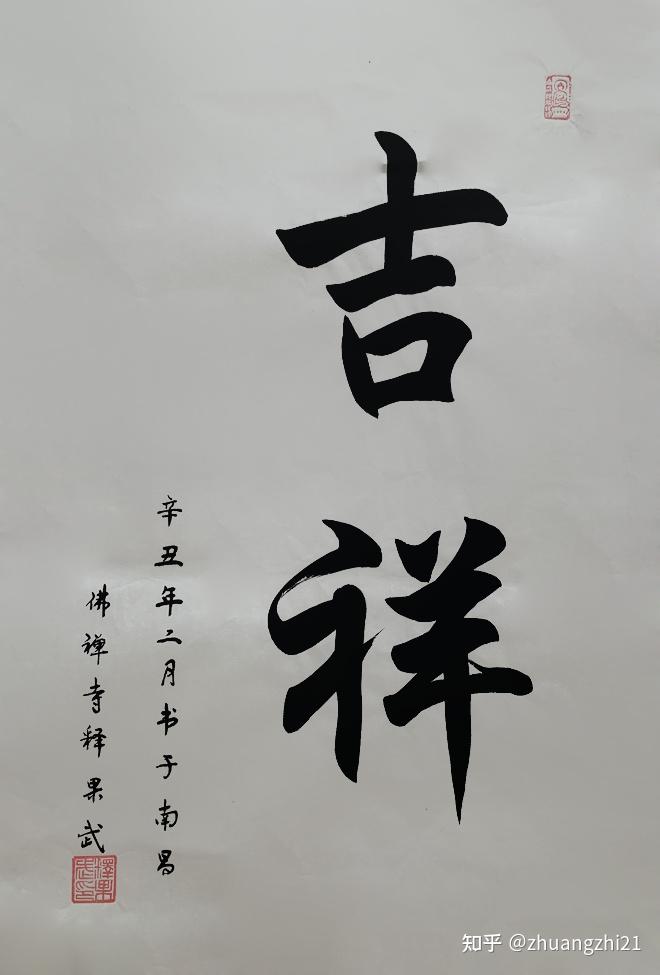 吉祥
辛丑年二月书于南昌
佛禅寺释果武
释果武印
知乎 @zhuangzhi21